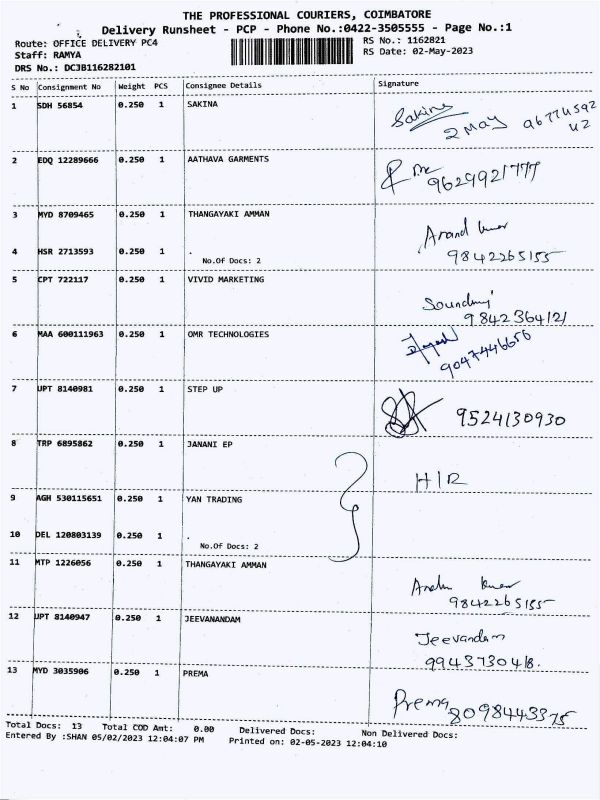 THE PROFESSIONAL COURIERS, COIMBATORE
Delivery Runsheet - PCP - Phone No.:0422-3505555 - Page No.:1
Route: OFFICE DELIVERY PC4
RS No.: 1162821
Staff: RAMYA
RS Date: 02-May-2023
DRS No.: DCJB116282101
S No Consignment No Weight PCS Consignee Details Signature
1 SDH 56854 0.250 1 SAKINA
Sakina 2 May
2 EDQ 12289666 0.250 1 AATHAVA GARMENTS
9629921777
3 MYD 8709465 0.250 1 THANGAYAKI AMMAN
Anand kumar
4 HSR 2713593 0.250 1 .
No.Of Docs: 2
9842265155
5 CPT 722117 0.250 1 VIVID MARKETING
9842364121
6 MAA 600111963 0.250 1 OMR TECHNOLOGIES
9047446656
7 UPT 8140981 0.250 1 STEP UP
9524130930
8 TRP 6895862 0.250 1 JANANI EP
H/R
9 AGH 530115651 0.250 1 YAN TRADING
10 DEL 120803139 0.250 1 .
No.Of Docs: 2
11 MTP 1226056 0.250 1 THANGAYAKI AMMAN
9842265155
12 UPT 8140947 0.250 1 JEEVANANDAM
Jeevandam
9943730418.
13 MYD 3035906 0.250 1 PREMA
Prema 8098443375
Total Docs: 13 Total COD Amt: 0.00 Delivered Docs: Non Delivered Docs:
Entered By :SHAN 05/02/2023 12:04:07 PM Printed on: 02-05-2023 12:04:10